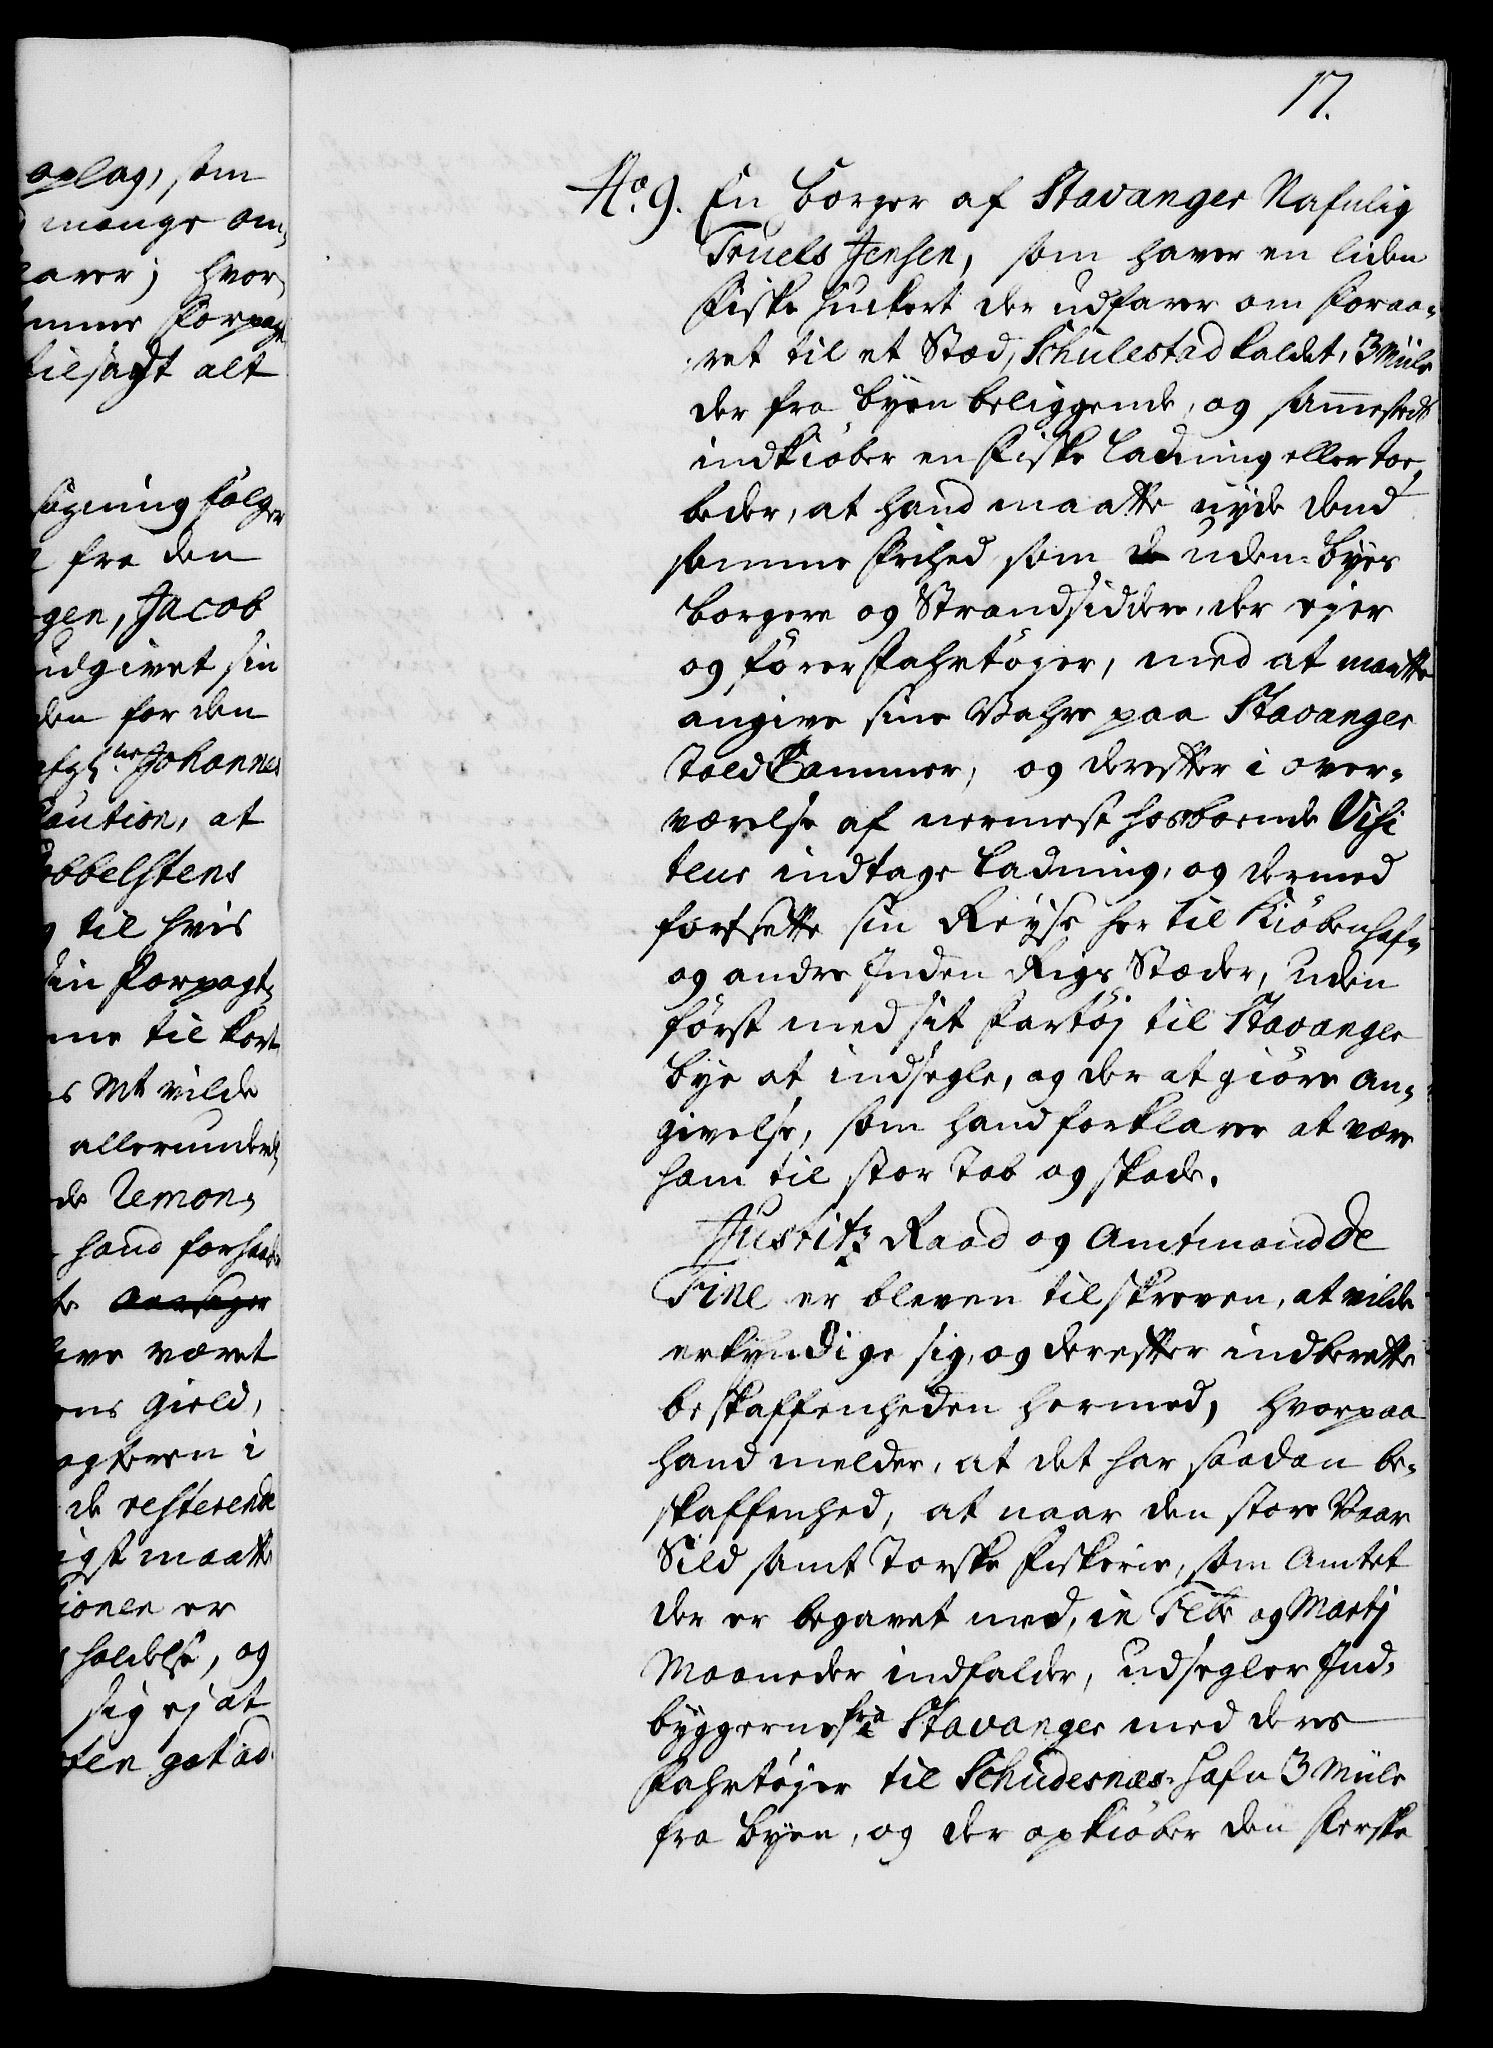 oplag, som
mange om,
arer; hvor,
mme Forpagt
tilsagt alt
sagning følger
fra den
gen, Jacob
udgivet sin
den for den
Johannes
Caution, at
obbelstens
til hvis
din Forpagt,
me til kort
s Mt vilde
allerunder
de Remon,
hand forhaab
te
ave været
ens Gield,
agteren i
de resterende
igst maatte
ionen er
holdelse, og
sig ej at
ten gotad
17.
No. 9. En Borger af Stavanger Nafnlig
Truels Jensen, som haver en liden
Fiske Huckert der udfarer om Foraa-
ret til et Stæd, Schulestad kaldet, 3 Miile
der fra Byen beliggende, og sammestedt
indkiöber en Fiske Ladning eller toe,
beder, at hand maatte nyde dend
samme Frihed som de uden-Byes
Borgere og Strandsiddere, der ejer
og förer Fahrtöyer, med at maatte
angive sine Vahre paa Stavanger
Told Cammer, og derefter i over-
værelse af nermest hosboende Visi
teur indtage Ladning, og dermed
fortsette sin Reyse her til Kiöbenhafn
og andre Inden Rigs Stæder, uden
först med sit Fartöj til Stavanger
Bye at indsegle, og der at giöre An-
givelse, som hand forklarer at være
ham til stor Tab og skade.
Justitz Raad og Amtmand de
Fine er bleven tilskreven, at vilde
erkyndige sig, og derefter indberette
beskaffenheden hermed, hvorpaa
hand melder, at det har saadan be-
skaffenhed, at naar den store Vaar
Sild samt Torske Fiskerie, som Amtet
der er begavet med, in Febr og Martj
Maaneder indfalder, udsegler Ind-
byggerne fra Stavanger med deres
Fahrtöjer til Schudesnæs-Hafn 3 Miile
fra Byen, og der opkiöber den Ferske